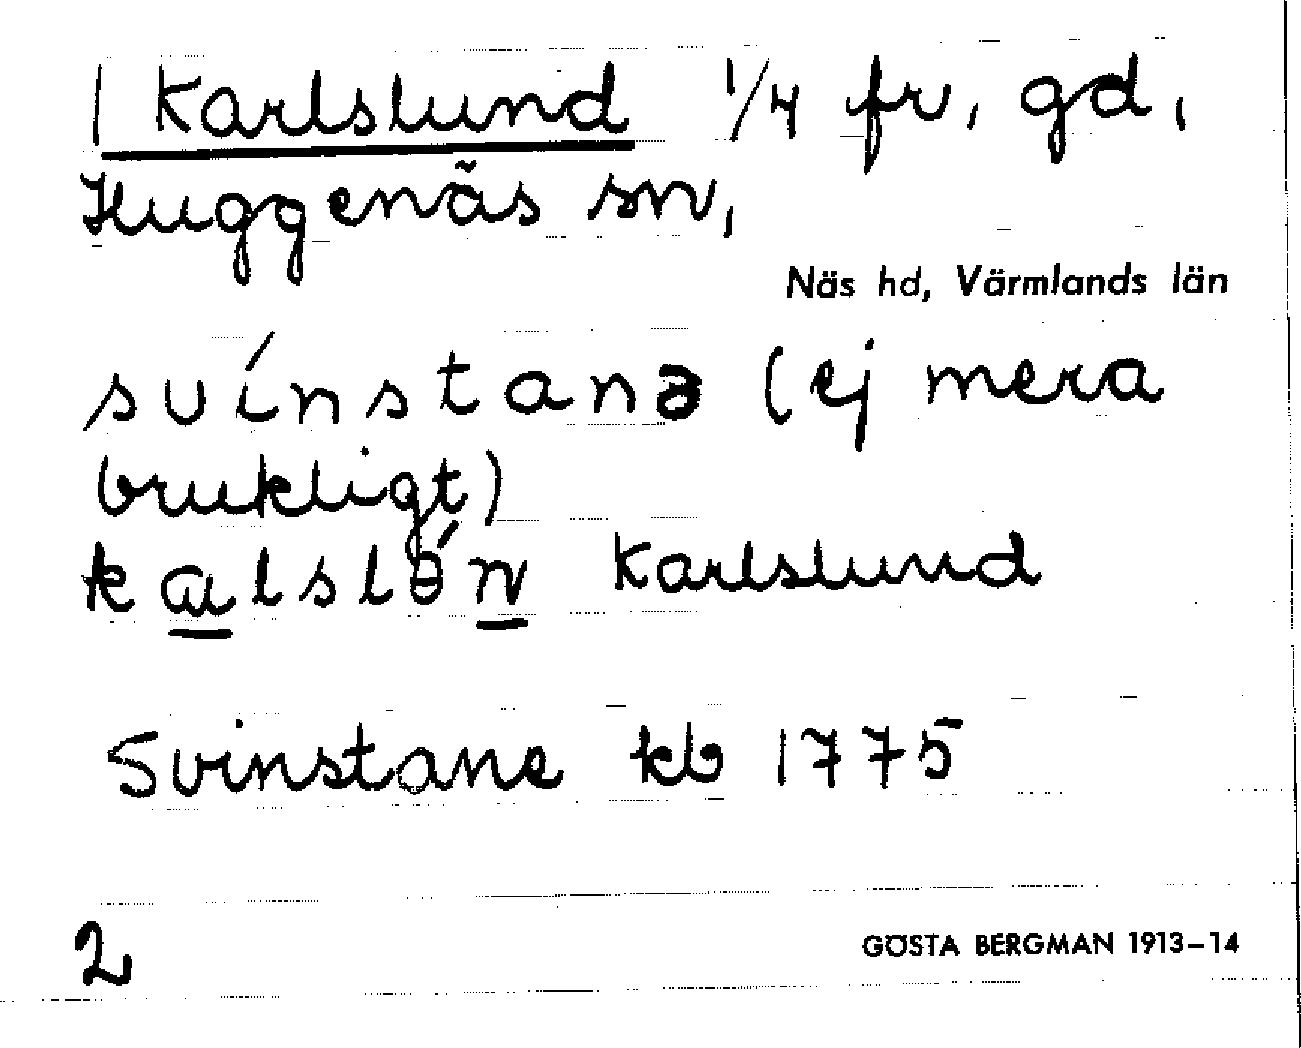 1 Karlslund 1/4 fr, gd,
Huggenäs sn,
Näs hd, Värmlands län
svínstanə (ej mera
brukligt)
kalslɵ́n Karlslund
Svinstane kb 1775
2
GÖSTA BERGMAN 1913–14